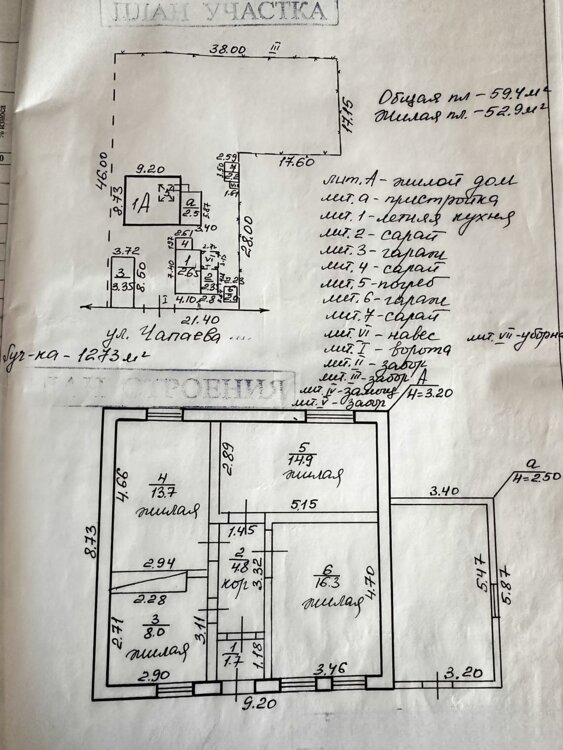 ПЛАН УЧАСТКА
38.00
III
Общая пл - 59.4 м²
Жилая пл. - 52.9 м²
17.15
17.60
46.00
9.20
8.73
1А
а
2.5
5.87
3.40
2.59
28.00
3.72
3
3.35
8.50
2.61
4
1
2.65
7.40
4.10
2.8
I
21.40
ул. Чапаева
Буч-ка - 1273 м²
лит. А - жилой дом
лит. а - пристройка
лит. 1 - летняя кухня
лит. 2 - сарай
лит. 3 - гараж
лит. 4 - сарай
лит. 5 - погреб
лит. 6 - гараж
лит. 7 - сарай
лит. VI - навес
лит. VII - уборна
лит. I - ворота
лит. II - забор
лит. III - забор
лит. IV - замощ
лит. V - забор
СТРОЕНИЯ
А
H=3.20
а
H=2.50
4.66
4
13.7
жилая
2.89
5
14.9
жилая
5.15
3.40
8.73
2.94
2.28
1.45
2
4.8
кор
3.32
6
16.3
жилая
4.70
5.47
5.87
2.71
3
8.0
жилая
3.11
1
1.7
1.18
2.90
3.46
3.20
9.20